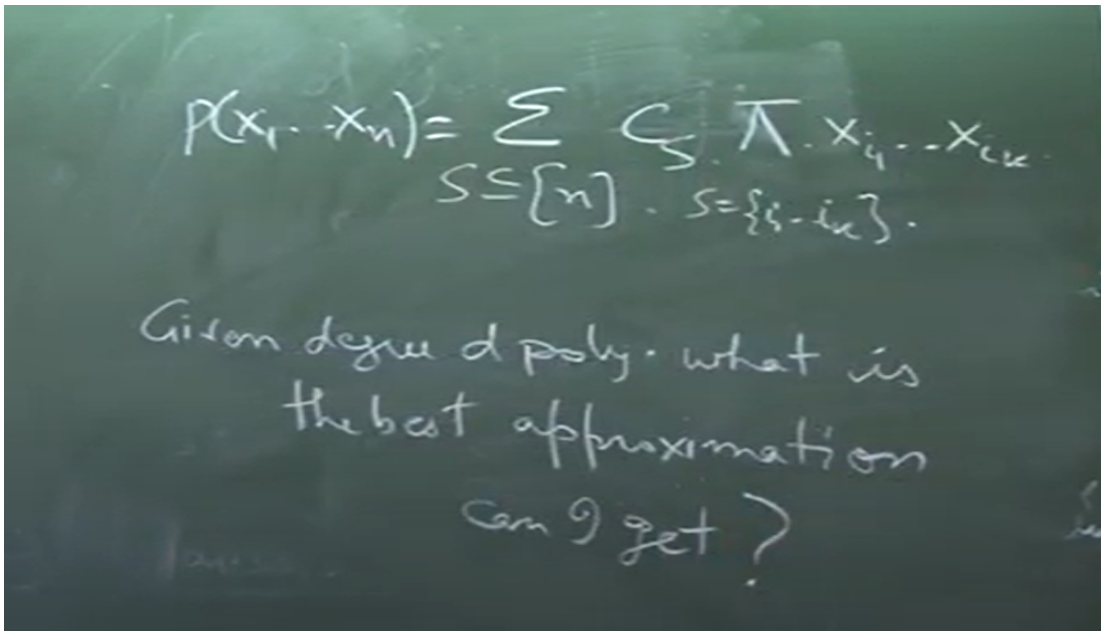 P(x₁...xₙ) = Σ C_S. Π. x_{i₁}...x_{iₖ}.
S ⊆ [n]. S={i₁-iₖ}.
Given degree d poly. what is
the best approximation
can I get?